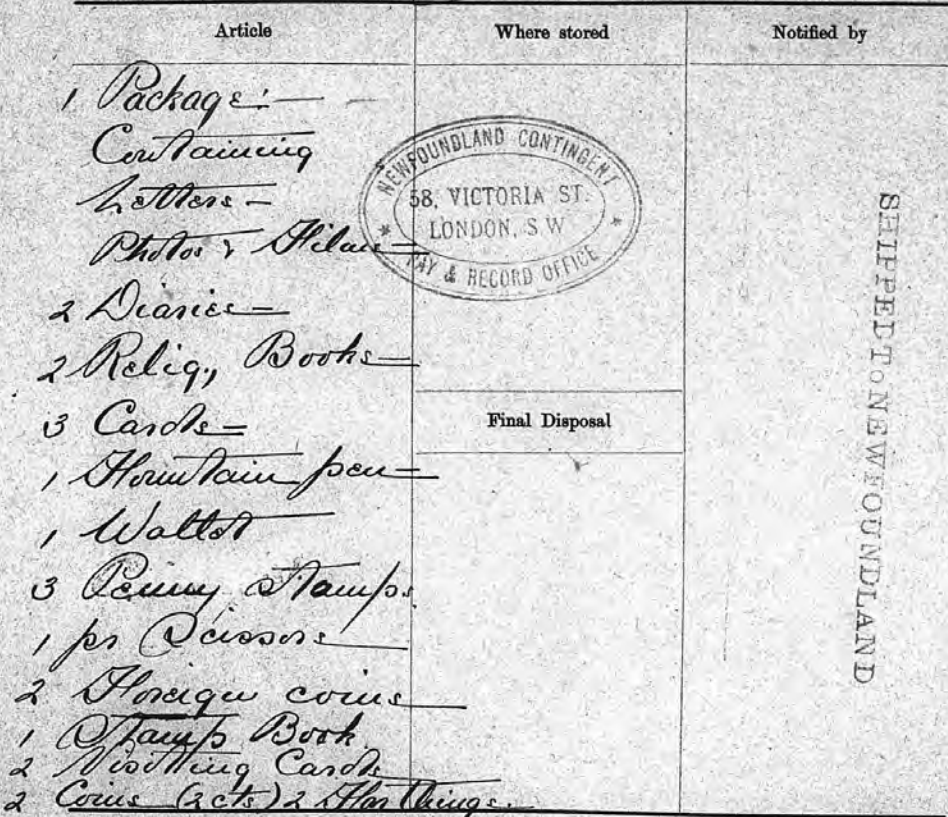 Article Where stored Notified by
1 Package:—
Containing
Letters —
Photos & Films —
2 Diaries —
2 Relig., Books —
3 Cards —
1 Fountain pen —
1 Wallet
3 Penny Stamps
1 pr Scissors
2 Foreign coins
1 Stamp Book
2 Visiting Cards
2 Coins (2 cts) 2 Farthings.
NEWFOUNDLAND CONTINGENT
58, VICTORIA ST.
LONDON, S W
PAY & RECORD OFFICE
Final Disposal
SHIPPED TO NEWFOUNDLAND